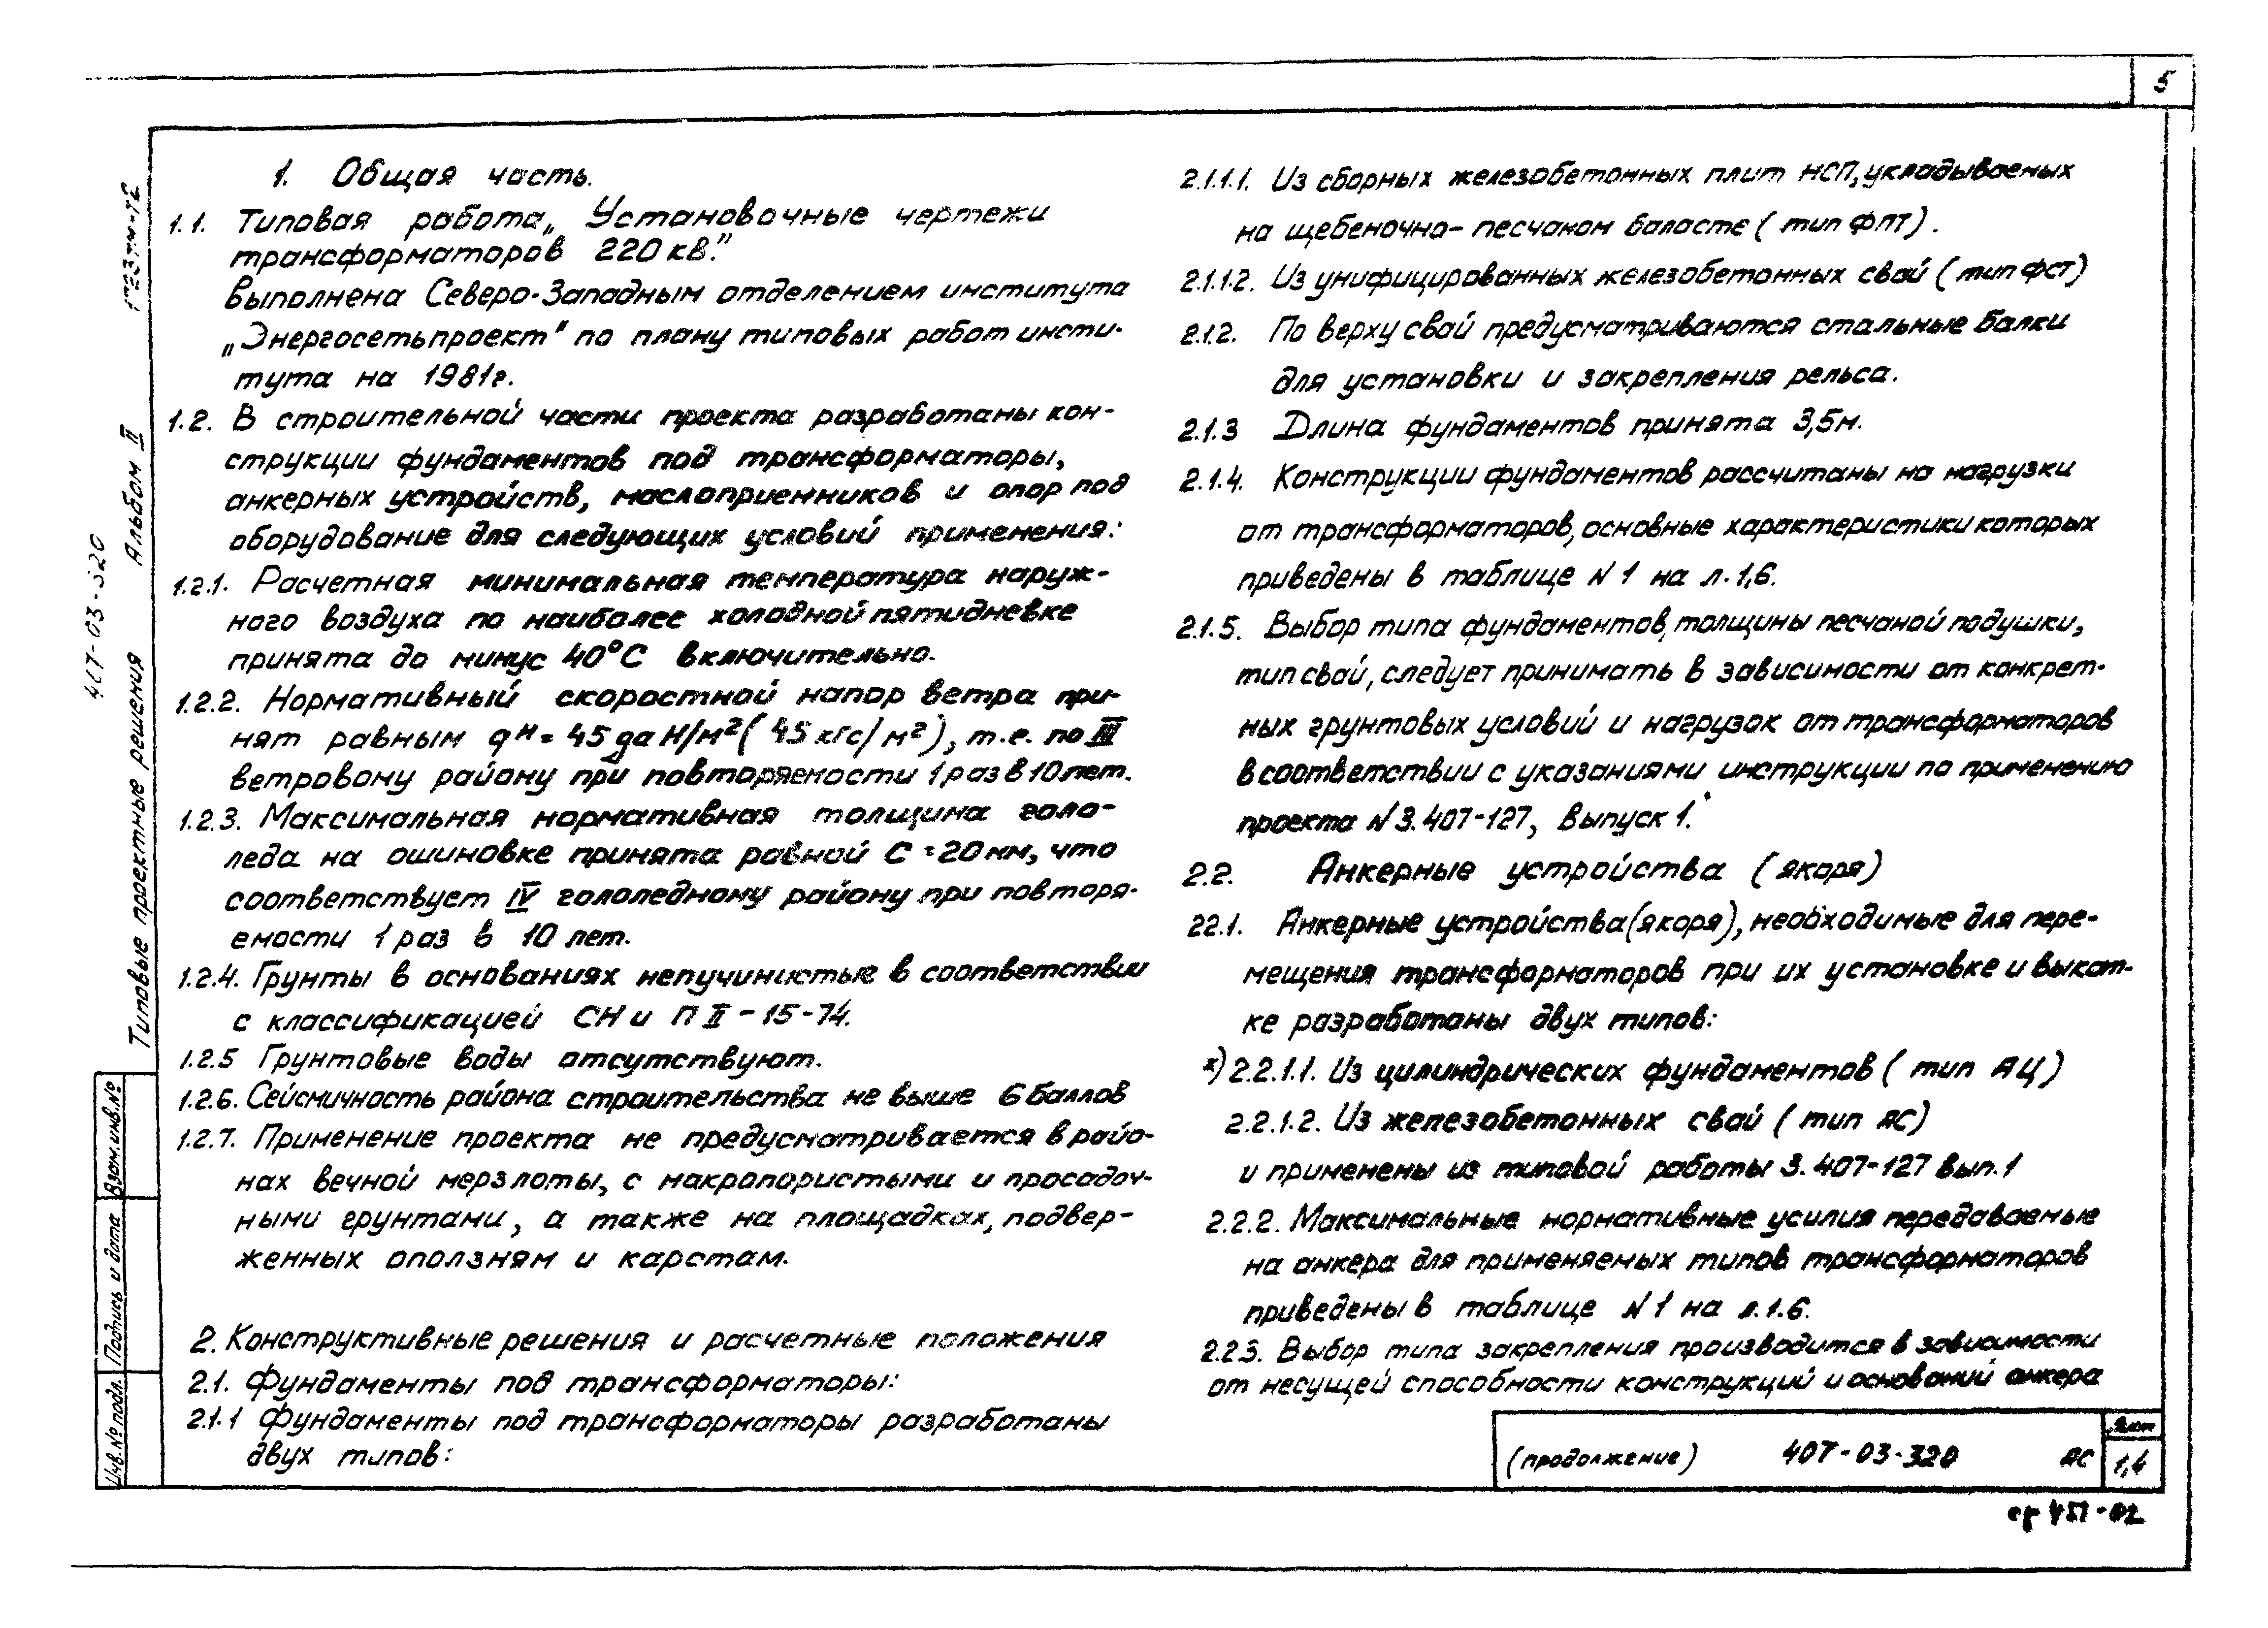 5
1. Общая часть.
1.1. Типовая работа „Установочные чертежи
трансформаторов 220кв."
Выполнена Северо-Западным отделением института
„Энергосетьпроект" по плану типовых работ инсти-
тута на 1981г.
1.2. В строительной части проекта разработаны кон-
струкции фундаментов под трансформаторы,
анкерных устройств, маслоприемников и опор под
оборудование для следующих условий применения:
1.2.1. Расчетная минимальная температура наруж-
ного воздуха по наиболее холодной пятидневке
принята до минус 40°С включительно.
1.2.2. Нормативный скоростной напор ветра при-
нят равным qн = 45 даН/м² (45 кгс/м²), т.е. по III
ветровому району при повторяемости 1 раз в 10 лет.
1.2.3. Максимальная нормативная толщина голо-
леда на ошиновке принята равной С = 20мм, что
соответствует IV гололедному району при повторя-
емости 1 раз в 10 лет.
1.2.4. Грунты в основаниях непучинистые в соответствии
с классификацией СНиП II-15-74.
1.2.5 Грунтовые воды отсутствуют.
1.2.6. Сейсмичность района строительства не выше 6 баллов
1.2.7. Применение проекта не предусматривается в райо-
нах вечной мерзлоты, с макропористыми и просадоч-
ными грунтами, а также на площадках, подвер-
женных оползням и карстам.
2. Конструктивные решения и расчетные положения
2.1. Фундаменты под трансформаторы:
2.1.1 Фундаменты под трансформаторы разработаны
двух типов:
2.1.1.1. Из сборных железобетонных плит НСП, укладываемых
на щебеночно-песчаном баласте (тип ФПТ).
2.1.1.2. Из унифицированных железобетонных свай (тип ФСТ)
2.1.2. По верху свай предусматриваются стальные балки
для установки и закрепления рельса.
2.1.3 Длина фундаментов принята 3,5м.
2.1.4. Конструкции фундаментов рассчитаны на нагрузки
от трансформаторов, основные характеристики которых
приведены в таблице N 1 на л. 1,6.
2.1.5. Выбор типа фундаментов, толщины песчаной подушки,
тип свай, следует принимать в зависимости от конкрет-
ных грунтовых условий и нагрузок от трансформаторов
в соответствии с указаниями инструкции по применению
проекта N 3.407-127, выпуск 1.
2.2. Анкерные устройства (якоря)
22.1. Анкерные устройства (якоря), необходимые для пере-
мещения трансформаторов при их установке и выкат-
ке разработаны двух типов:
х) 2.2.1.1. Из цилиндрических фундаментов (тип АЦ)
2.2.1.2. Из железобетонных свай (тип АС)
и применены из типовой работы 3.407-127 вып. 1
2.2.2. Максимальные нормативные усилия передаваемые
на анкера для применяемых типов трансформаторов
приведены в таблице N 1 на л. 1.6.
2.2.3. Выбор типа закрепления производится в зависимости
от несущей способности конструкций и оснований анкера
(продолжение) 407-03-320 АС
Лист
1,4
407-03-320
Типовые проектные решения Альбом II
Взам.инв.№
Подпись и дата
Инв.№ подл.